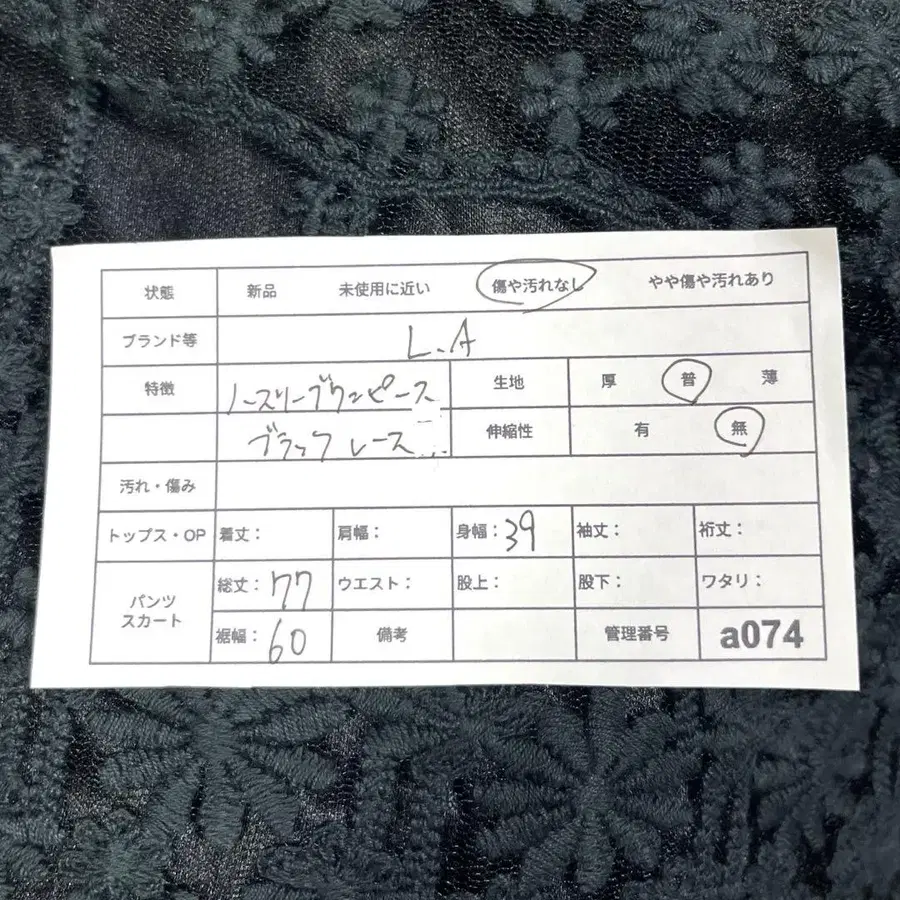 状態 新品 未使用に近い 傷や汚れなし やや傷や汚れあり
ブランド等 L.A
特徴 ノースリーブワンピース 生地 厚 普 薄
ブラックレース... 伸縮性 有 無
汚れ・傷み
トップス・OP 着丈： 肩幅： 身幅：39 袖丈： 裄丈：
パンツ スカート 総丈：77 ウエスト： 股上： 股下： ワタリ：
裾幅：60 備考 管理番号 a074